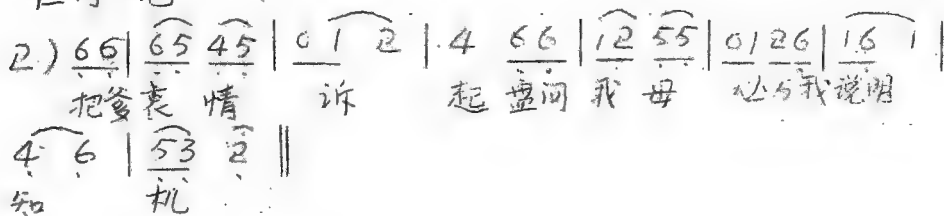 2) 66 | 65 45 | 0 1 2 | 4 66 | 12 55 | 01 26 | 16 1 |
把爹衷情 诉 起 盘问 我 母 必与我说明
4 6 | 53 2 ‖
知 机